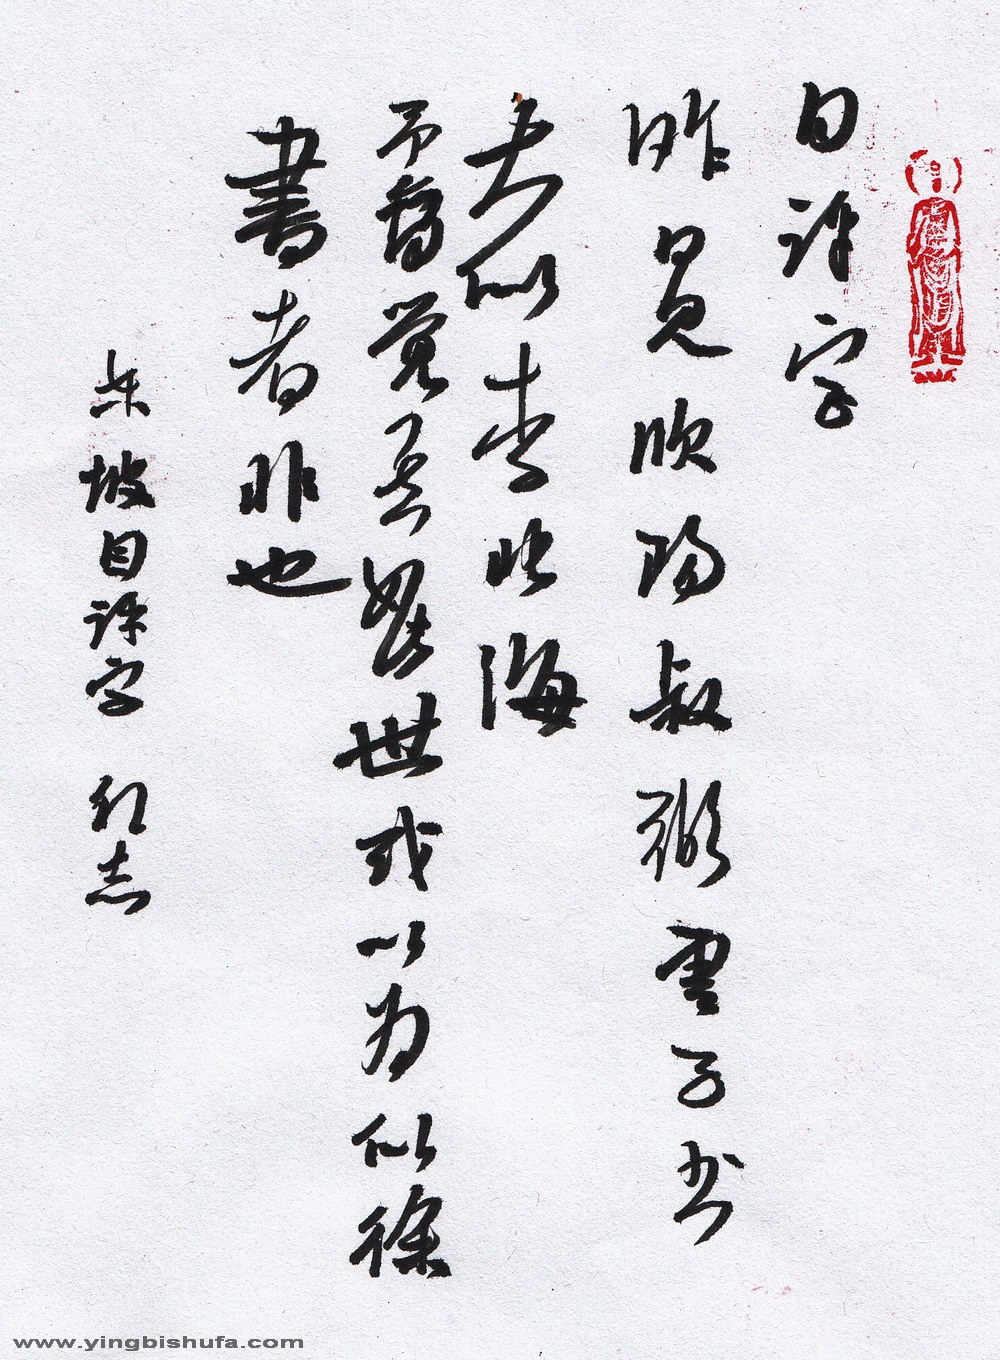 自评字
昨日见欧阳叔弼雲子书
大似李北海
予亦自觉其如此世或以为似徐
書者非也
东坡自评字 志
www.yingbishufa.com